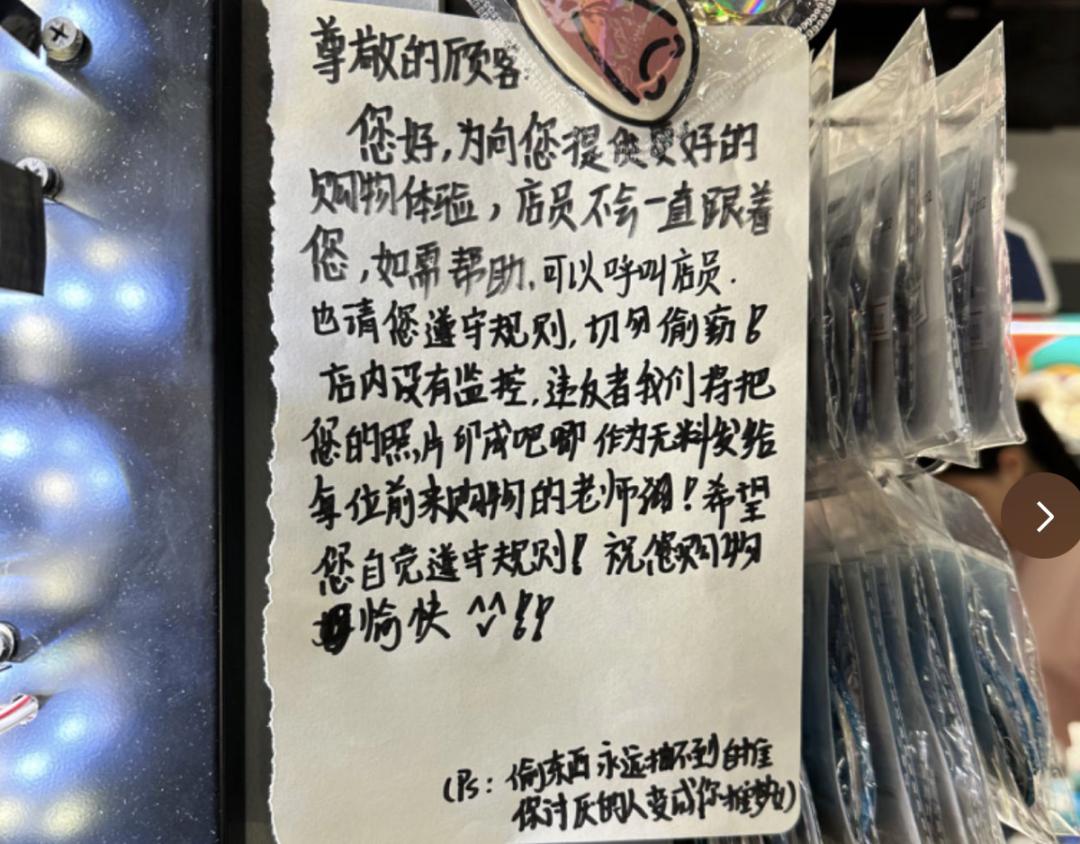 尊敬的顾客:
您好,为向您提供更好的
购物体验,店员不会一直跟着
您,如需帮助,可以呼叫店员.
也请您遵守规则,切勿偷窃!
店内设有监控,违反者我们将把
您的照片印成吧唧 作为无料发给
每位前来购物的老师湖!希望
您自觉遵守规则!祝您购物
愉快 ^^!!
(Ps:偷东西永远抽不到自推
保讨厌的人变成你推梦女)